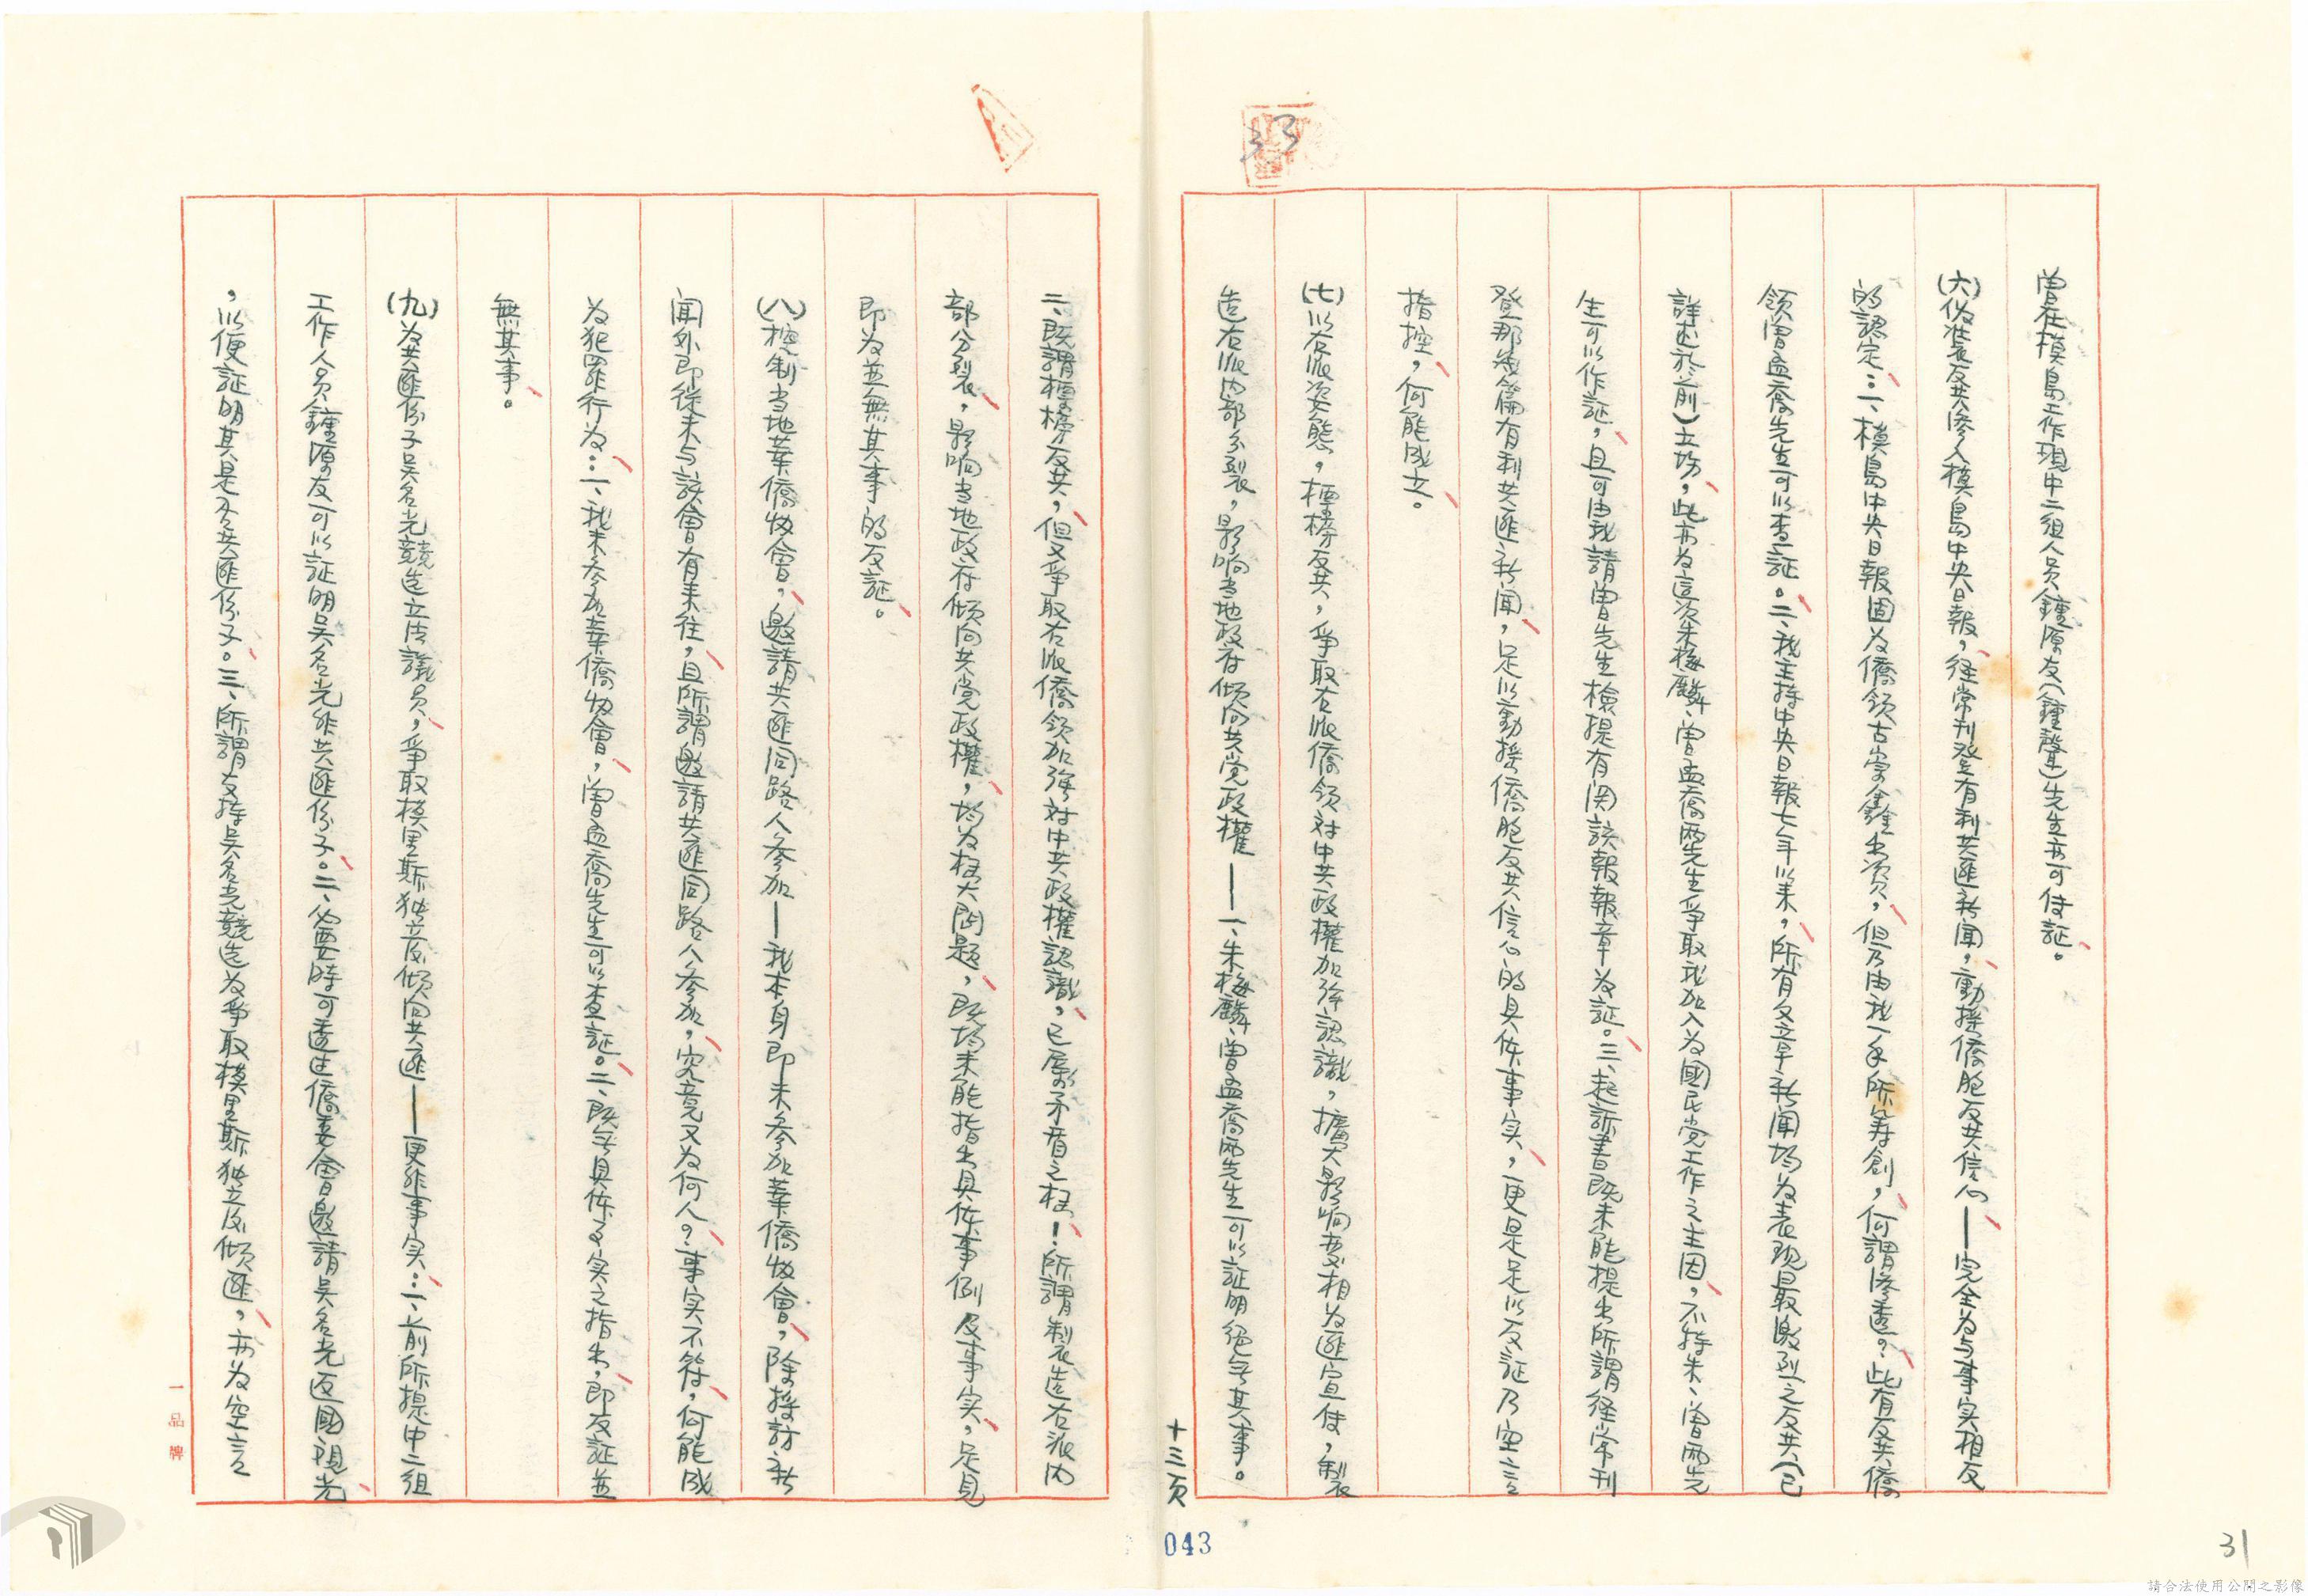 曾在模島工作現中二組人員鍾原友(鍾聲)先生亦可佐証。
(六)偽裝反共滲入模島中央日報,経常刊登有利共匪新聞,動搖僑胞反共信心——完全為与事实相反
的認定:一、模島中央日報固為僑領古崇鑫出資,但乃由我一手所筹創,何謂滲透?此有反共僑
領曾孟喬先生可以查証。二、我主持中央日報七年以来,所有文章新聞均为表現最激烈之反共(已
詳述於前)立場,此亦为這次朱梅麟、曾孟喬兩先生爭取我加入为國民党工作之主因,不特朱、曾兩先
生可以作証,且可由我請曾先生檢提有関該報報章为証。三、起訴書既未能提出所謂経常刊
登那幾篇有利共匪新聞,足以動搖僑胞反共信心的具体事实,更是足以反証乃空言
指控,何能成立。
(七)以右派姿態,標榜反共,爭取右派僑領対中共政權加強認識,擴大影响変相为匪宣伝,製
造右派內部分裂,影响当地政府倾向共党政權——一、朱梅麟、曾孟喬兩先生可以証明絕無其事。
十三页
二、既謂標榜反共,但又爭取右派僑領加強対中共政權認識,已屬矛盾之极!所謂製造右派内
部分裂,影响当地政府倾向共党政權,均为极大問題,既均未能指出具体事例及事实,足見
即为並無其事的反証。
(八)控制当地華僑牧會,邀請共匪同路人参加——我本身即未参加華僑牧會,除採訪新
闻外即從未与該會有来往,且所謂邀請共匪同路人参加,究竟又为何人?事实不符,何能成
为犯罪行为:一、我未参加華僑牧會,曾孟喬先生可以查証。二、既無具体事实之指出,即反証並
無其事。
(九)为共匪份子吳名光競选立法議員,爭取模里斯独立及倾向共匪——更非事实:一、前所提中二組
工作人员鍾原友可以証明吳名光非共匪份子。二、必要時可透过僑委會邀請吳名光返國觀光
,以便証明其是否共匪份子。三、所謂支持吳名光競选为爭取模里斯独立及倾匪,亦为空言
一品牌
043
33
31
請合法使用公開之影像